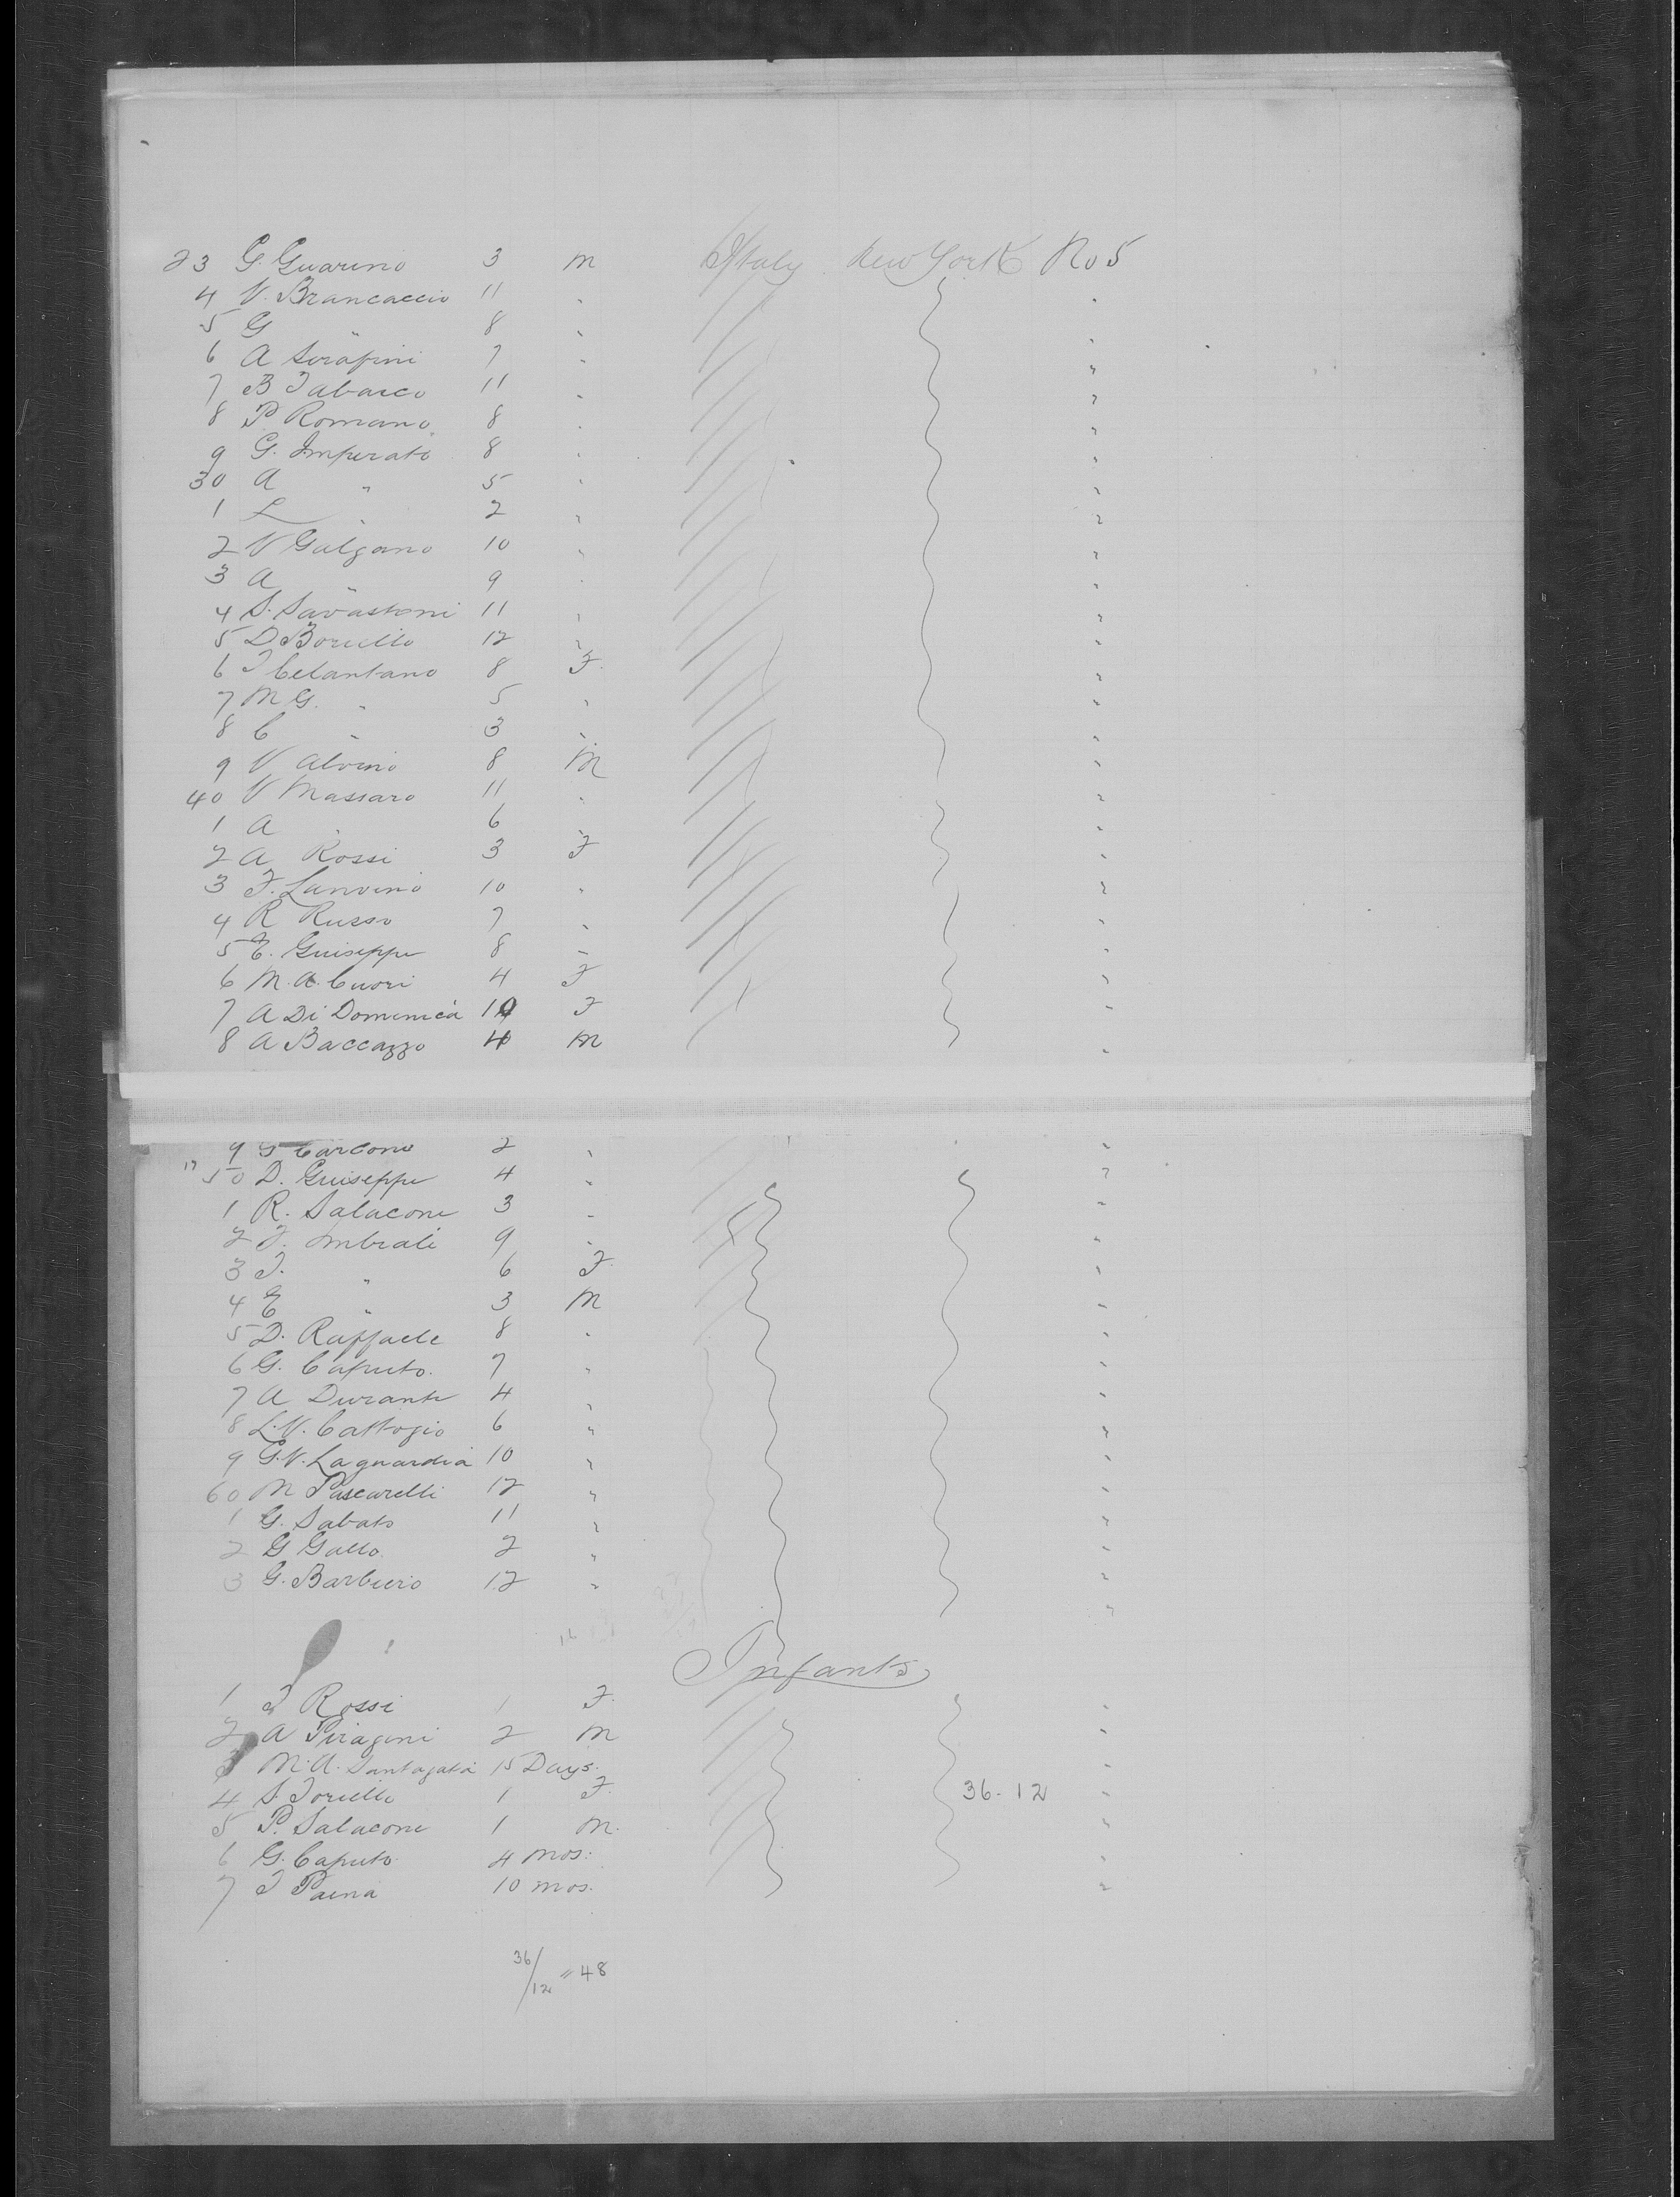 23 G. Guarino 3 m Italy New York No 5
4 V. Brancaccio 11 "
5 G " 8 " "
6 A Serafini 7 " "
7 B Tabasco 11 " "
8 P. Romano 8 " "
9 G. Imperato 8 " "
30 A " 5 " "
1 L " 2 " "
2 V Galgano 10 " "
3 A " 9 " "
4 S. Savastoni 11 " "
5 D. Boriello 12 " "
6 T Celantano 8 F. "
7 M G. " 5 " "
8 C " 3 " "
9 V Alvino 8 M "
40 V Massaro 11 " "
1 A " 6 " "
2 A Rossi 3 F "
3 F. Lanvino 10 " "
4 R Russo 7 " "
5 E. Guiseppe 8 " "
6 M. A. Cuori 4 F "
7 A Di Domenica 10 F "
8 A Baccazzo 4 m "
9 G Carcone 2 " "
50 D. Guiseppe 4 " "
1 R. Salacone 3 " "
2 F. Imbrali 9 " "
3 T. " 6 F. "
4 E " 3 M "
5 D. Raffaele 8 " "
6 G. Caputo. 7 " "
7 A Durante 4 " "
8 L. V. Cattogio 6 " "
9 G. V. Laguardia 10 " "
60 M Pascarelli 12 " "
1 G. Sabato 11 " "
2 G Gallo. 2 " "
3 G. Barbiero 12 " "
Infants
1 T Rossi 1 F. "
2 A Piragini 2 M "
3 M. A. Santagata 15 Days. "
4 S. Toriello 1 F. 36-12 "
5 P. Salacone 1 M. "
6 G. Caputo 4 mos. "
7 T Paina 10 mos. "
36/12 = 48